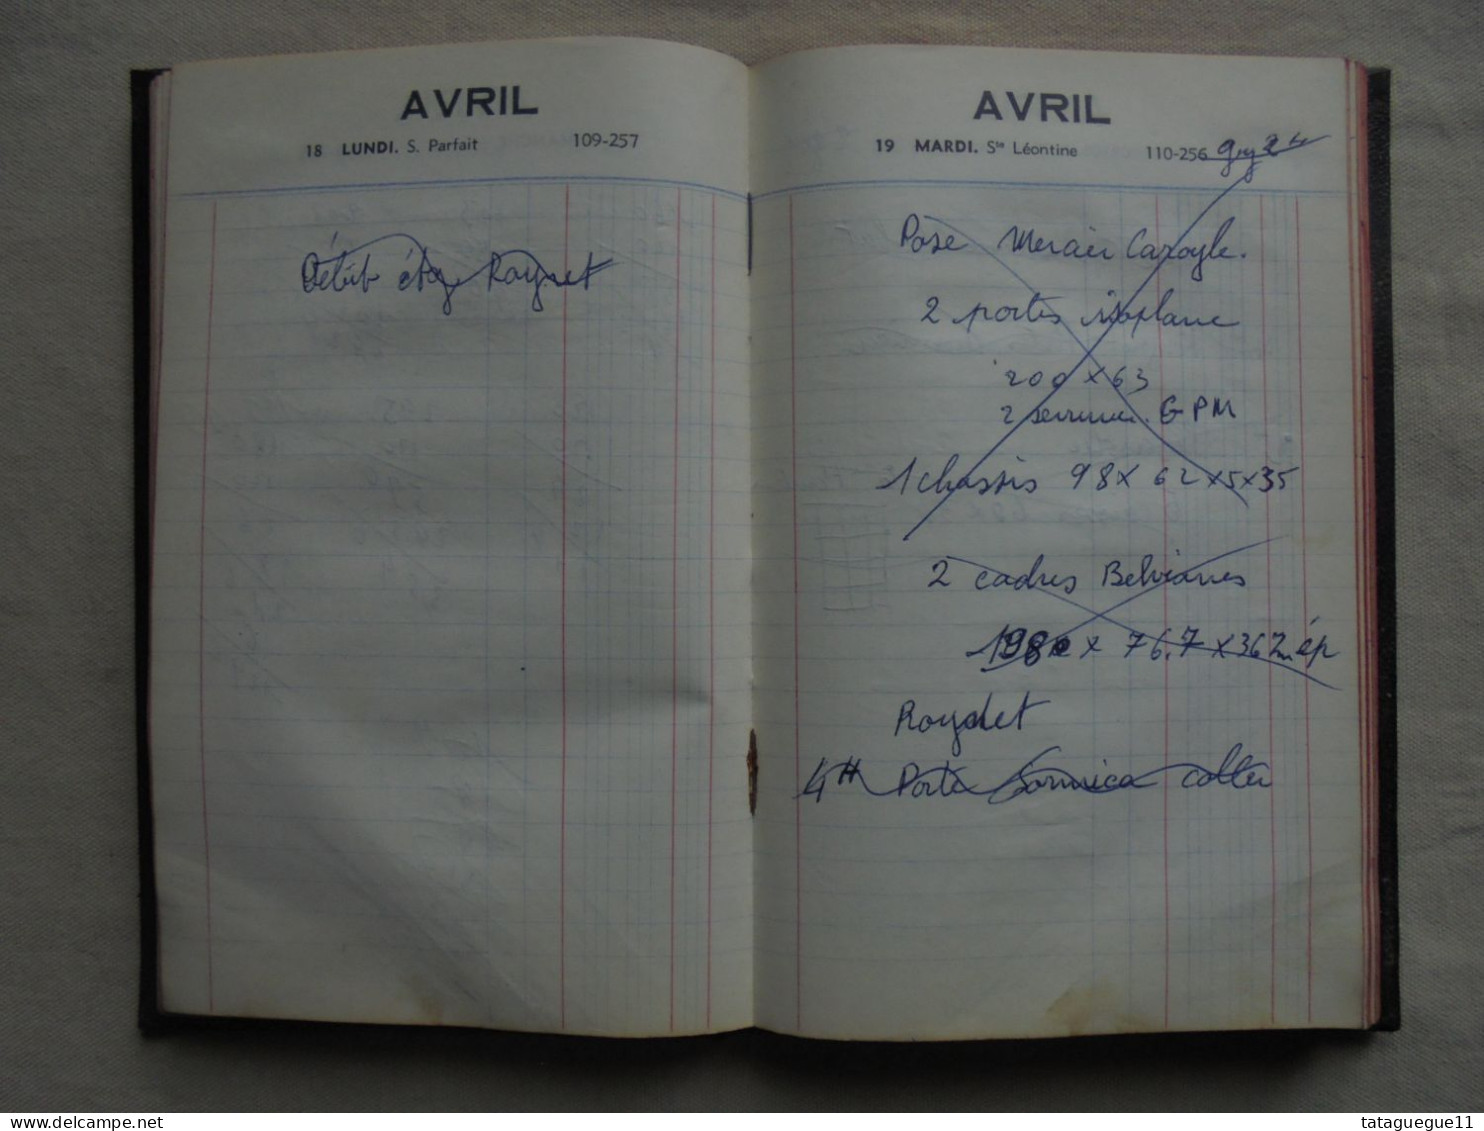 AVRIL
18 LUNDI. S. Parfait 109-257
Début étg Roydet
AVRIL
19 MARDI. Ste Léontine 110-256 Guy 2h
Pose Cazogle.
2 portes isoplane
200 x 63
2 serrures. G P M
1 chassis 98 x 62 x 5 x 35
2 cadres Belvianes
198 x 76,7 x 36 2m ép
Roydet
4H Porte formica coller
delcampe.net
tataguegue11